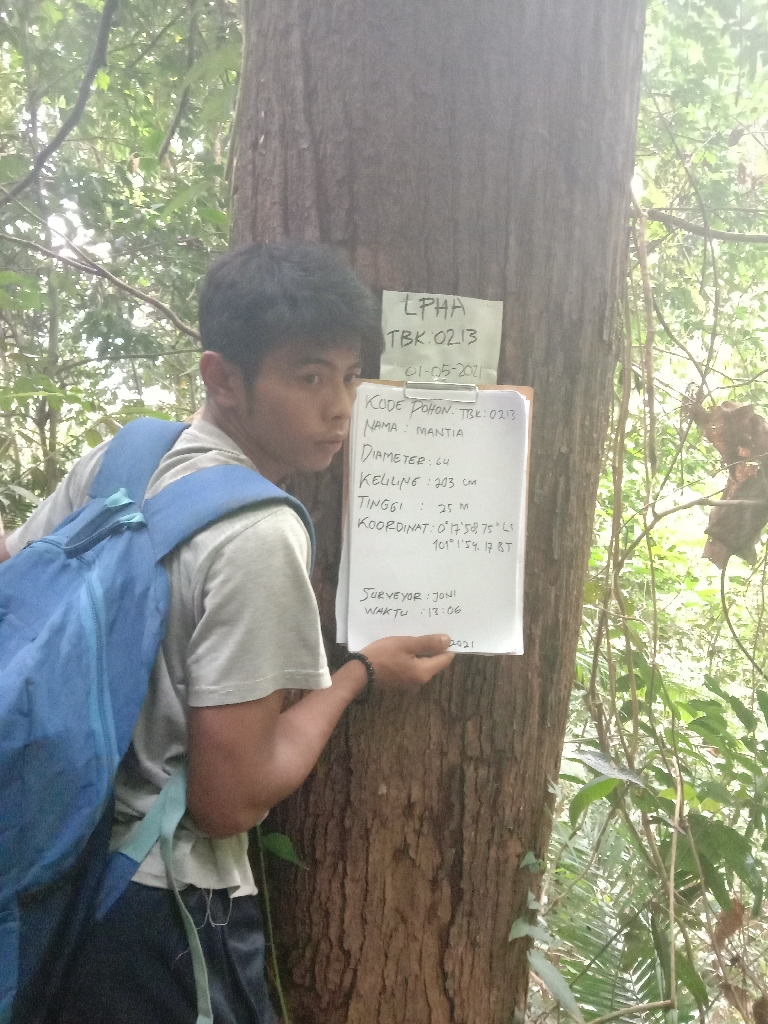 LPHA
TBK:0213
01-05-2021
KODE POHON: TBK:0213
NAMA : MANTIA
DIAMETER: 64
KELILING: 203 cm
TINGGI : 25 M
KOORDINAT: 0°17'58,75" LS
101°1'54.17 BT
SURVEYOR : JONI
WAKTU : 13:06
2021